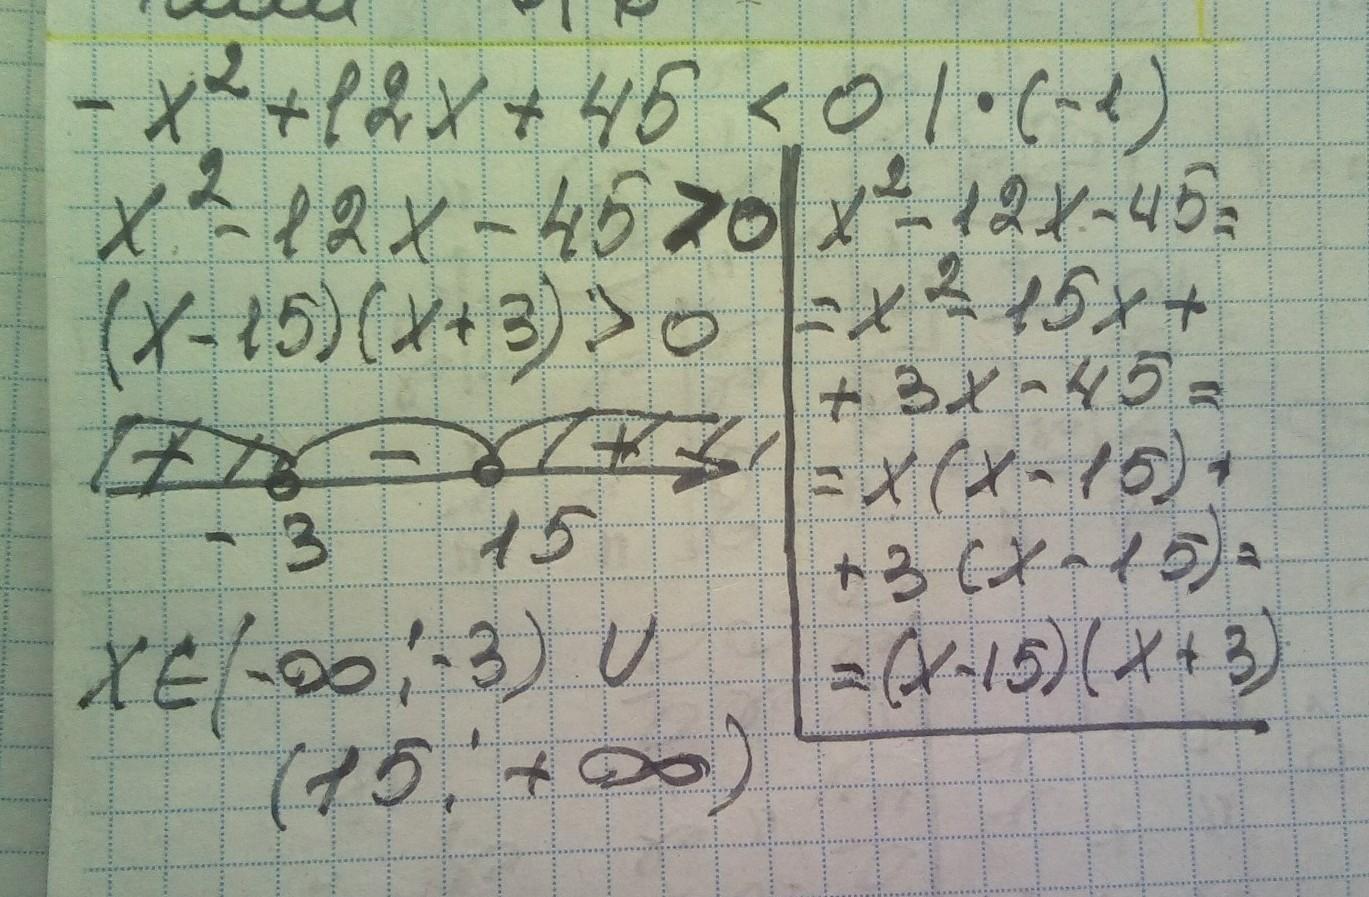 - x² + 12x + 45 < 0 | · (-1)
x² - 12x - 45 > 0
(x - 15)(x + 3) > 0
+ - +
- 3 15
x ∈ (-∞; -3) ∪
(15; +∞)
x² - 12x - 45 =
= x² - 15x +
+ 3x - 45 =
= x(x - 15) +
+ 3(x - 15) =
= (x - 15)(x + 3)